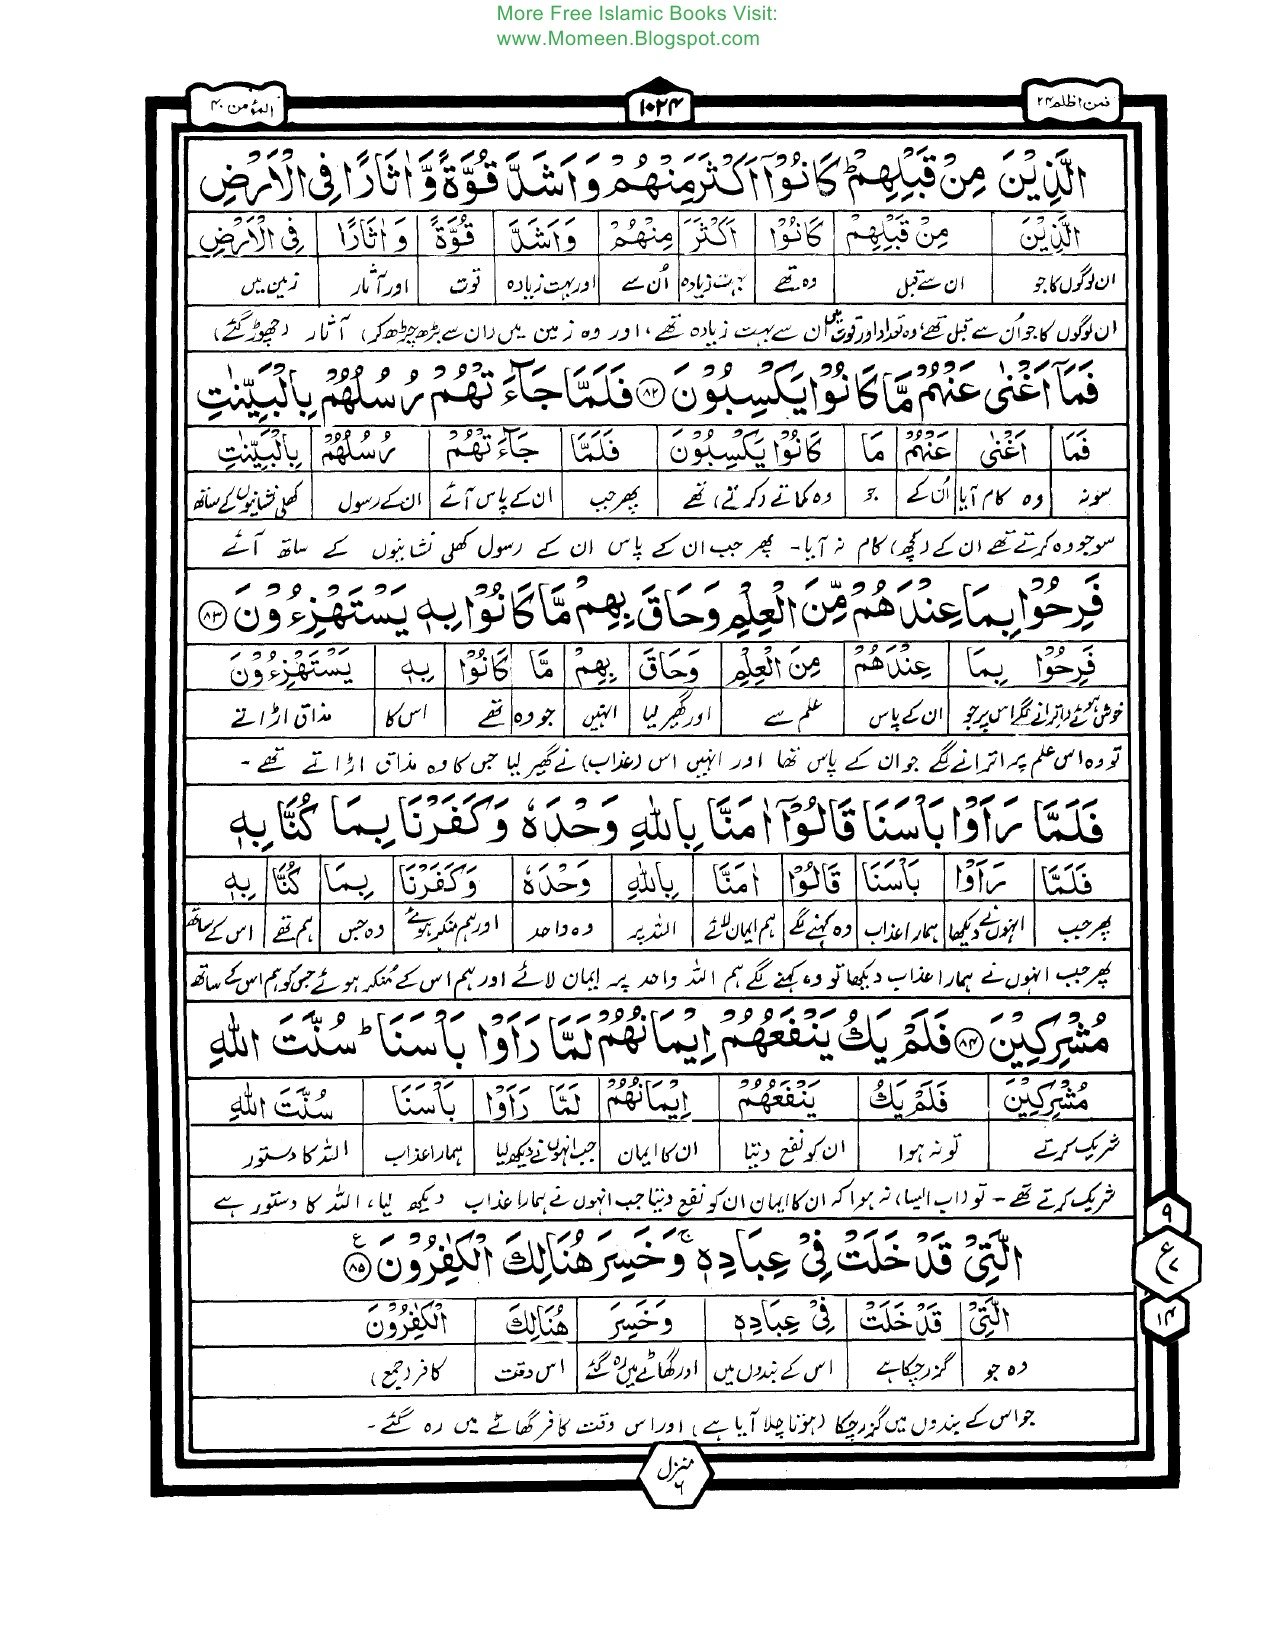 More Free Islamic Books Visit:
www.Momeen.Blogspot.com
فمن اظلم ۲۴
۱۰۲۴
المؤمن ۴۰
الَّذِيْنَ مِنْ قَبْلِهِمْ ؕ كَانُوْۤا اَكْثَرَ مِنْهُمْ وَ اَشَدَّ قُوَّةً وَّ اٰثَارًا فِى الْاَرْضِ
الَّذِيْنَ مِنْ قَبْلِهِمْ كَانُوْۤا اَكْثَرَ مِنْهُمْ وَاَشَدَّ قُوَّةً وَ اٰثَارًا فِى الْاَرْضِ
ان لوگوں کا جو ان سے قبل وہ تھے بہت زیادہ اُن سے اور بہت زیادہ قوت اور آثار زمین میں
ان لوگوں کا جو اُن سے قبل تھے، وہ تعداد اور قوت میں ان سے بہت زیادہ تھے، اور وہ زمین میں (ان سے بڑھ چڑھ کر) آثار (چھوڑ گئے)
فَمَاۤ اَغْنٰى عَنْهُمْ مَّا كَانُوْا يَكْسِبُوْنَ ﴿۸۲﴾ فَلَمَّا جَآءَتْهُمْ رُسُلُهُمْ بِالْبَيِّنٰتِ
فَمَا اَغْنٰى عَنْهُمْ مَا كَانُوْا يَكْسِبُوْنَ فَلَمَّا جَآءَتْهُمْ رُسُلُهُمْ بِالْبَيِّنٰتِ
سو نہ وہ کام آیا اُن کے جو وہ کماتے (کرتے) تھے پھر جب ان کے پاس آئے ان کے رسول کھلی نشانیوں کے ساتھ
سو جو وہ کرتے تھے ان کے (کچھ) کام نہ آیا۔ پھر جب ان کے پاس ان کے رسول کھلی نشانیوں کے ساتھ آئے
فَرِحُوْا بِمَا عِنْدَهُمْ مِّنَ الْعِلْمِ وَحَاقَ بِهِمْ مَّا كَانُوْا بِهٖ يَسْتَهْزِءُوْنَ ﴿۸۳﴾
فَرِحُوْا بِمَا عِنْدَهُمْ مِنَ الْعِلْمِ وَحَاقَ بِهِمْ مَّا كَانُوْا بِهٖ يَسْتَهْزِءُوْنَ
خوش ہوئے (اترانے لگے) اس پر جو ان کے پاس علم سے اور گھیر لیا انہیں جو وہ تھے اس کا مذاق اڑاتے
تو وہ اس علم پر اترانے لگے جو ان کے پاس تھا اور انہیں اس (عذاب) نے گھیر لیا جس کا وہ مذاق اڑاتے تھے۔
فَلَمَّا رَاَوْا بَاْسَنَا قَالُوْۤا اٰمَنَّا بِاللّٰهِ وَحْدَهٗ وَكَفَرْنَا بِمَا كُنَّا بِهٖ
فَلَمَّا رَاَوْا بَاْسَنَا قَالُوْۤا اٰمَنَّا بِاللّٰهِ وَحْدَهٗ وَكَفَرْنَا بِمَا كُنَّا بِهٖ
پھر جب انہوں نے دیکھا ہمارا عذاب وہ کہنے لگے ہم ایمان لائے اللہ پر وہ واحد اور ہم منکر ہوئے وہ جس ہم تھے اس کے ساتھ
پھر جب انہوں نے ہمارا عذاب دیکھا تو وہ کہنے لگے ہم اللہ واحد پر ایمان لائے اور ہم اس کے منکر ہوئے جس کو ہم اس کے ساتھ
مُشْرِكِيْنَ ﴿۸۴﴾ فَلَمْ يَكُ يَنْفَعُهُمْ اِيْمَانُهُمْ لَمَّا رَاَوْا بَاْسَنَا ؕ سُنَّتَ اللّٰهِ
مُشْرِكِيْنَ فَلَمْ يَكُ يَنْفَعُهُمْ اِيْمَانُهُمْ لَمَّا رَاَوْا بَاْسَنَا سُنَّتَ اللّٰهِ
شریک کرتے تو نہ ہوا ان کو نفع دیتا ان کا ایمان جب انہوں نے دیکھ لیا ہمارا عذاب اللہ کا دستور
شریک کرتے تھے۔ تو (اب ایسا) نہ ہوا کہ ان کا ایمان ان کو نفع دیتا جب انہوں نے ہمارا عذاب دیکھ لیا، اللہ کا دستور ہے
الَّتِىْ قَدْ خَلَتْ فِىْ عِبَادِهٖ ۚ وَخَسِرَ هُنَالِكَ الْكٰفِرُوْنَ ﴿۸۵﴾ ع
الَّتِىْ قَدْ خَلَتْ فِىْ عِبَادِهٖ وَخَسِرَ هُنَالِكَ الْكٰفِرُوْنَ
وہ جو گزر چکا ہے اس کے بندوں میں اور گھاٹے میں رہ گئے اس وقت کافر (جمع)
جو اس کے بندوں میں گزر چکا (ہوتا چلا آیا ہے) اور اس وقت کافر گھاٹے میں رہ گئے۔
۹
ع ۷
۱۴
منزل ۶